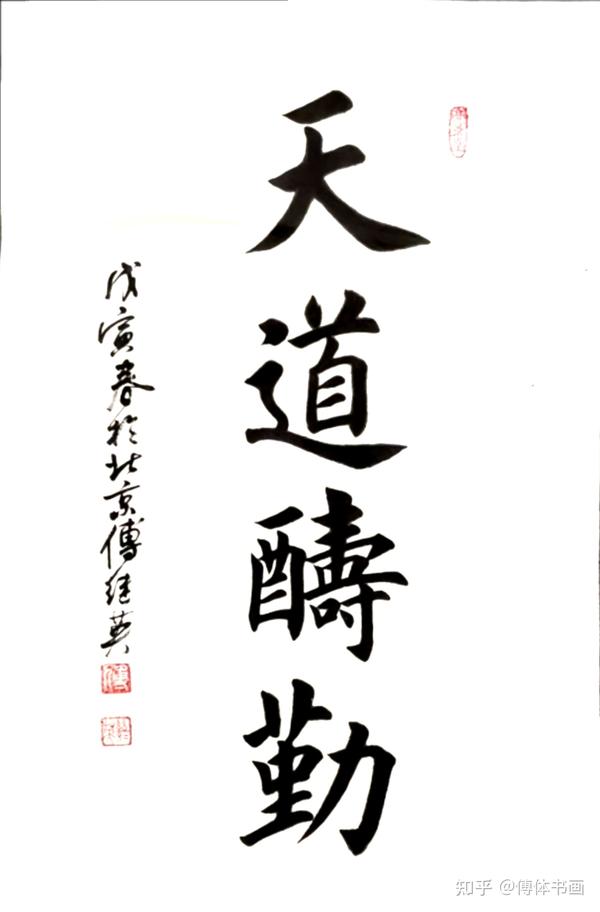 天道醻勤
戊寅春於北京傅继英
知乎 @傅体书画